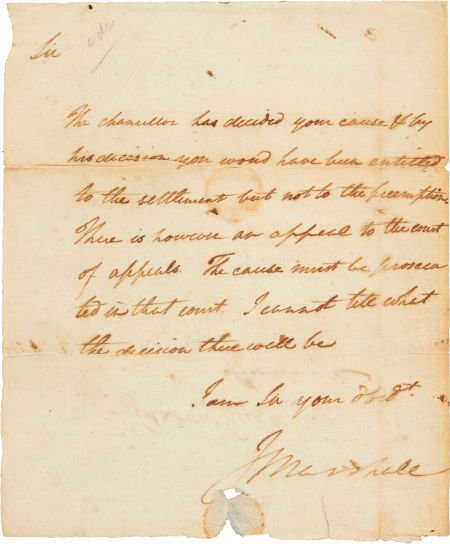 Sir
The chancellor has decided your cause & by
his decision you woud have been entitled
to the settlement but not to the preemption.
There is however an appeal to the court
of appeals. The cause must be prosecu
ted in that court. I cannot tell what
the decision there will be
I am Sir your obedt.
J Marshall